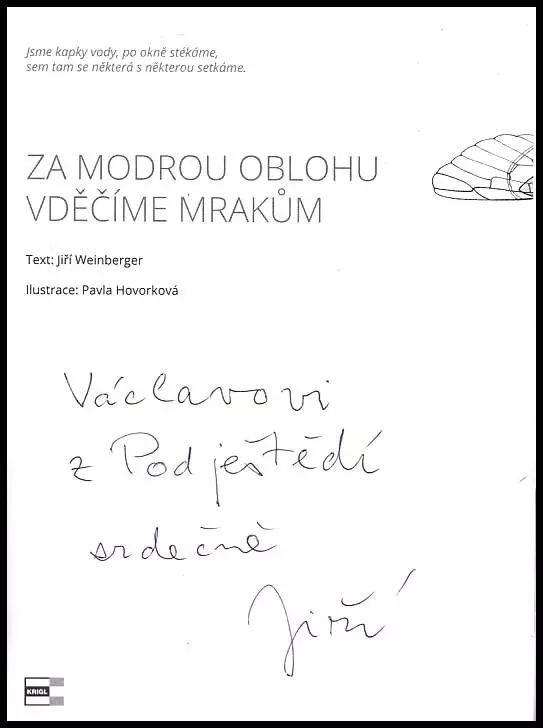 Jsme kapky vody, po okně stékáme,
sem tam se některá s některou setkáme.
ZA MODROU OBLOHU
VDĚČÍME MRAKŮM
Text: Jiří Weinberger
Ilustrace: Pavla Hovorková
Václavovi
z Podještědí
srdečně
Jiří
KRIGL